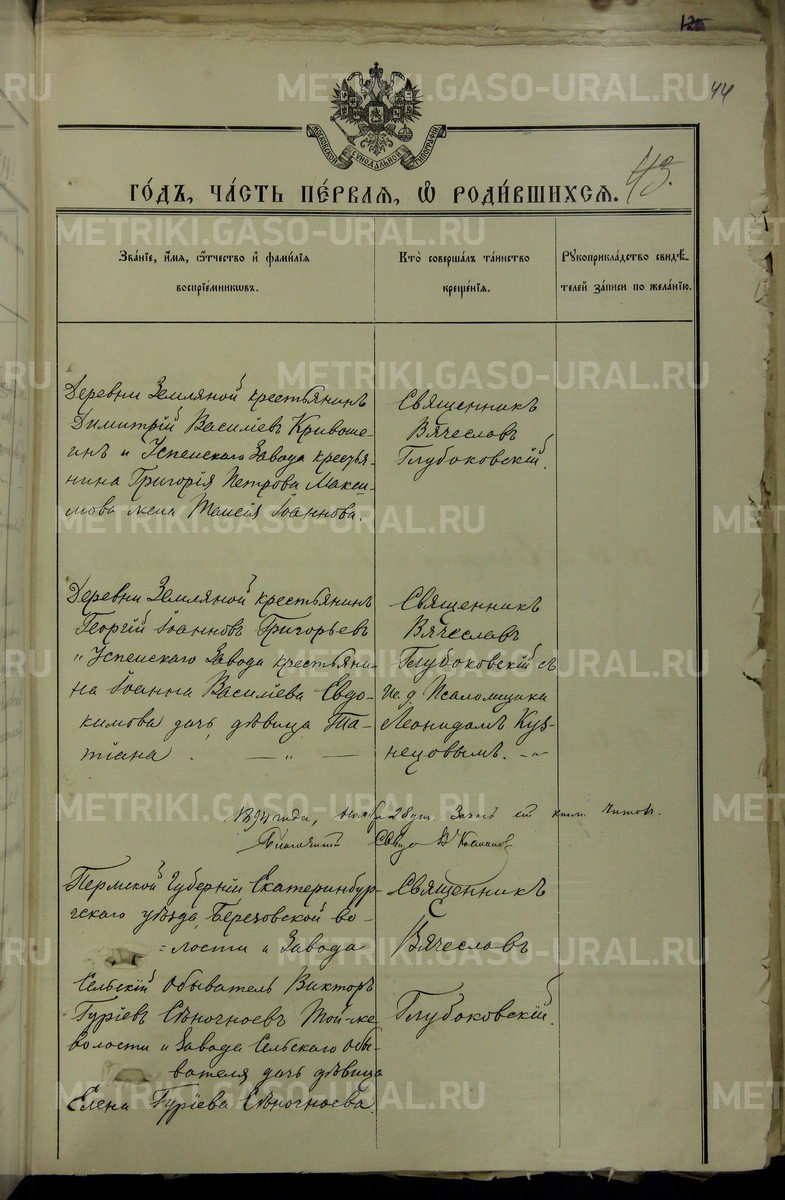 12
44
METRIKI.GASO-URAL.RU
МОСКОВСКОЙ СѴНОДАЛЬНОЙ ТИПОГРАФІИ
ГО́ДЪ, ЧА́СТЬ ПЕ́РВАЯ, Ѽ РОДИ́ВШИХСЯ. 43.
METRIKI.GASO-URAL.RU
Зва́нїе, и҆́мя, ѻ҆́тчество и҆ фамї́лїя
воспрїе́мникѡвъ.
Кто̀ соверша́лъ та́инство
креще́нїя.
Рꙋкоприкла́дство свидѣ́-
телей за́писи по жела́нїю.
Деревни Земляной крестьянинъ
Димитрій Василіевъ Кривоше-
инъ и Успенскаго Завода крестья-
нина Григорія Петрова Макси-
мова жена Іоаннова.
Священникъ
Вячеславъ
Глубоковскій.
Деревни Земляной крестьянинъ
Георгій Іоанновъ Григорьевъ
" Успенскаго Завода крестьяни-
на Іоанна Василіева Евдо-
кимова дочь дѣвица Та-
тіана. — " —
Священникъ
Вячеславъ
Глубоковскій съ
И. д. Псаломщика
Леонидомъ Куз-
нецовымъ. - " -
года, Ноября 28
METRIKI.GASO-URAL.RU
Пермской Губерніи Екатеринбур-
гскаго уѣзда, Березовской во-
=лости и Завода
Сельскій обыватель Викторъ
Гуріевъ Сѣночноевъ Той-же
волости и Завода Сельскаго обы-
вателя дочь дѣвица
Елена Гуріева Сѣночноева.
Священникъ
Вячеславъ
Глубоковскій.
METRIKI.GASO-URAL.RU